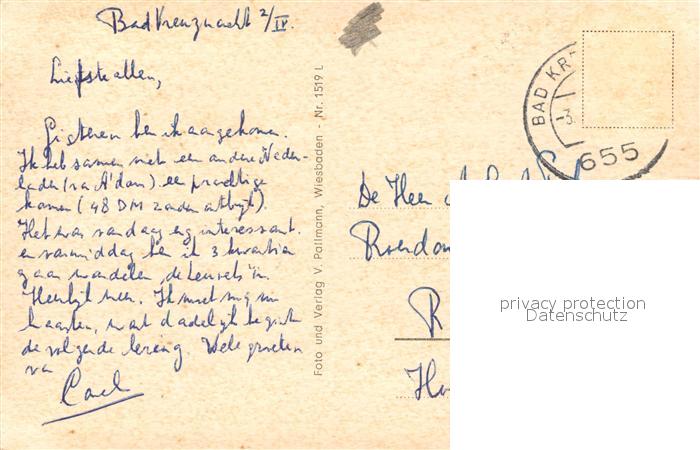 Bad Kreuznacht 2/IV.
Liefste allen,
Gisteren ben ik aangekomen.
Ik heb samen met een andere Neder-
lander (va A'dam) een prachtige
kamer (48 DM zonder ontbijt).
Het was vandaag erg interessant.
en vanmiddag ben ik 3 kwartier
gaan wandelen, de heuvels in.
Heerlijk weer. Ik moet mij nu
haasten, want dadelijk begint
de volgende lezing. Vele groeten
van
Carel
Foto und Verlag V. Pallmann, Wiesbaden - Nr. 1519 L
BAD KR
-3.
655
De Heer
R
privacy protection
Datenschutz